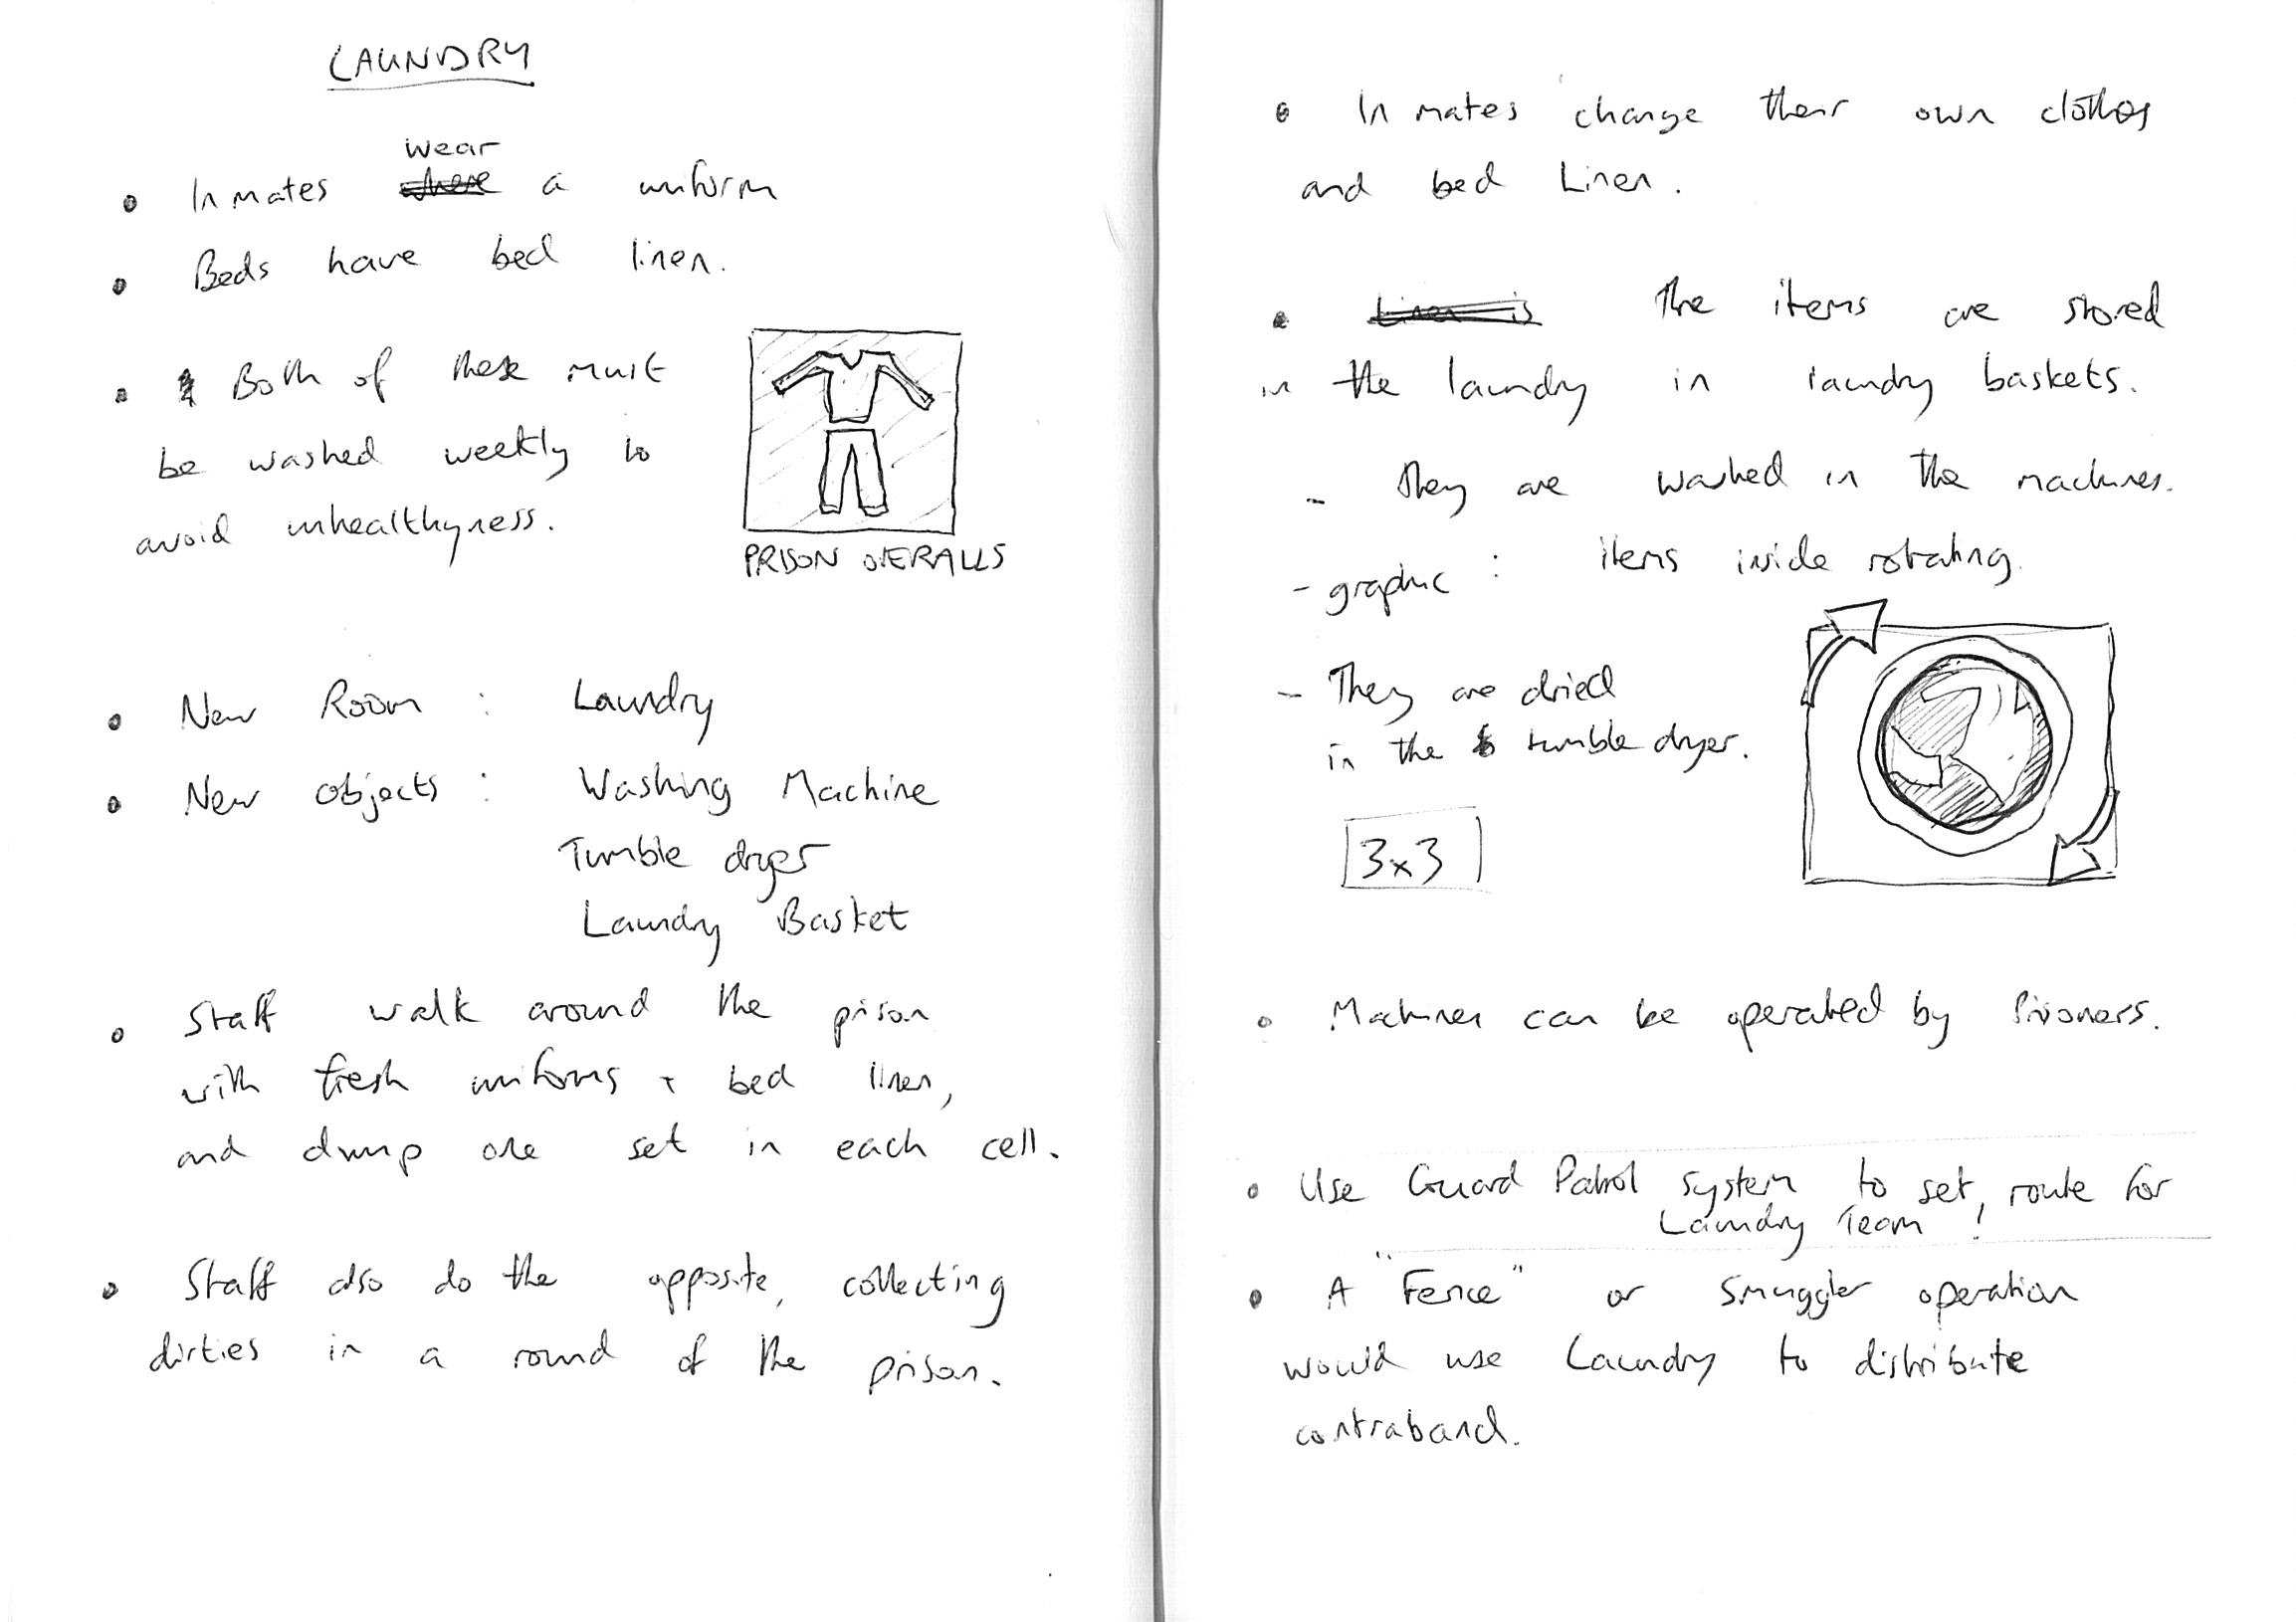 LAUNDRY
wear
• Inmates where a uniform
• Beds have bed linen.
• Both of these must
be washed weekly to
avoid unhealthyness.
PRISON OVERALLS
• New Room : Laundry
• New objects : Washing Machine
Tumble dryer
Laundry Basket
• Staff walk around the prison
with fresh uniforms + bed linen,
and dump one set in each cell.
• Staff also do the opposite, collecting
dirties in a round of the prison.
• Inmates change their own clothes
and bed Linen.
• Linen is The items are stored
in the laundry in laundry baskets.
- They are washed in the machines.
- graphic : items inside rotating.
- They are dried
in the tumble dryer.
3x3
• Machines can be operated by Prisoners.
• Use Guard Patrol system to set, route for
Laundry Team !
• A "Fence" or Smuggler operation
would use Laundry to distribute
contraband.